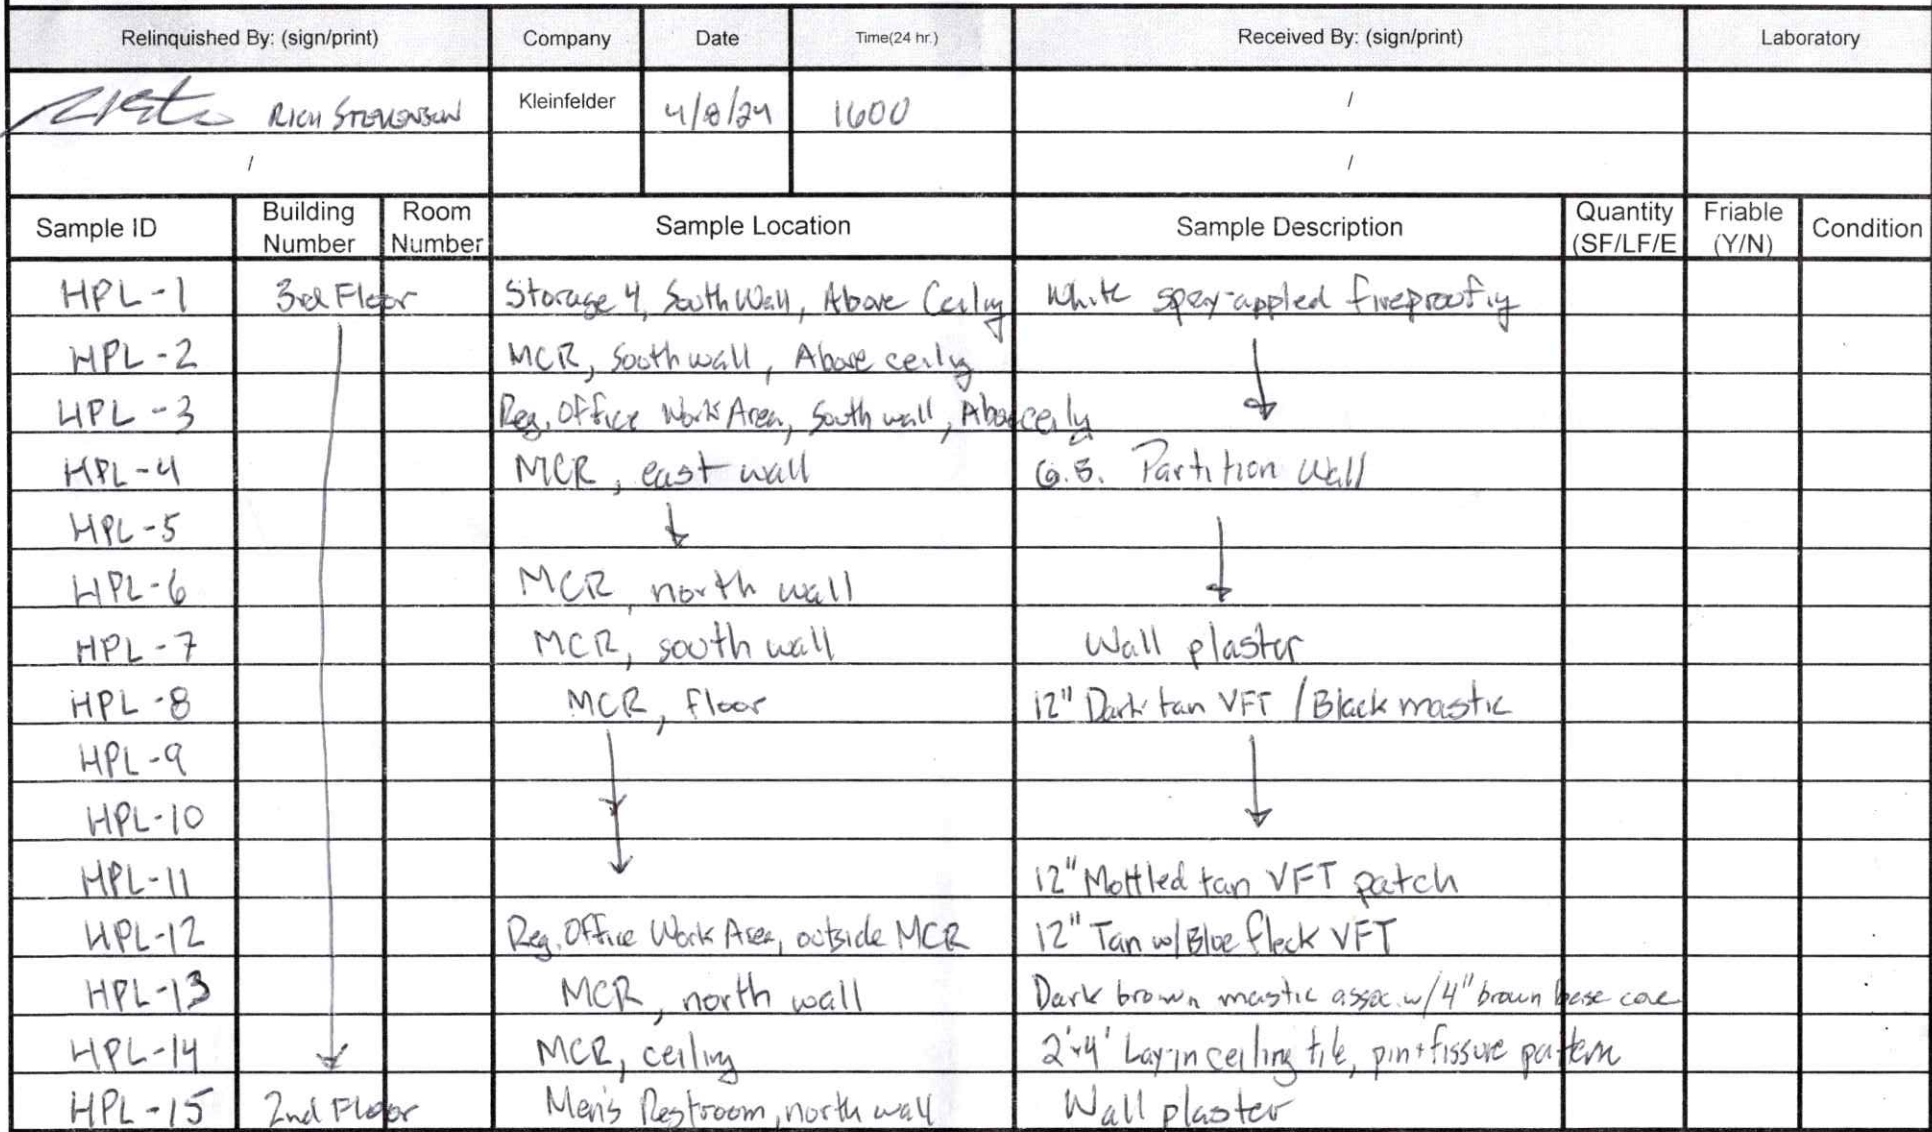 Relinquished By: (sign/print) Company Date Time(24 hr.) Received By: (sign/print) Laboratory
RICH STEVENSON Kleinfelder 4/8/24 1600 /
/ /
Sample ID Building Number Room Number Sample Location Sample Description Quantity (SF/LF/E Friable (Y/N) Condition
HPL-1 3rd Floor Storage 4, South Wall, Above Ceiling White spray-applied fireproofing
HPL-2 MCR, South wall, Above ceiling
HPL-3 Reg. Office Work Area, South wall, Above ceiling
HPL-4 MCR, east wall G.B. Partition Wall
HPL-5
HPL-6 MCR, north wall
HPL-7 MCR, south wall Wall plaster
HPL-8 MCR, floor 12" Dark tan VFT / Black mastic
HPL-9
HPL-10
HPL-11 12" Mottled tan VFT patch
HPL-12 Reg. Office Work Area, outside MCR 12" Tan w/ Blue fleck VFT
HPL-13 MCR, north wall Dark brown mastic assoc. w/ 4" brown base cove
HPL-14 MCR, ceiling 2'x4' Lay-in ceiling tile, pin+fissure pattern
HPL-15 2nd Floor Men's Restroom, north wall Wall plaster